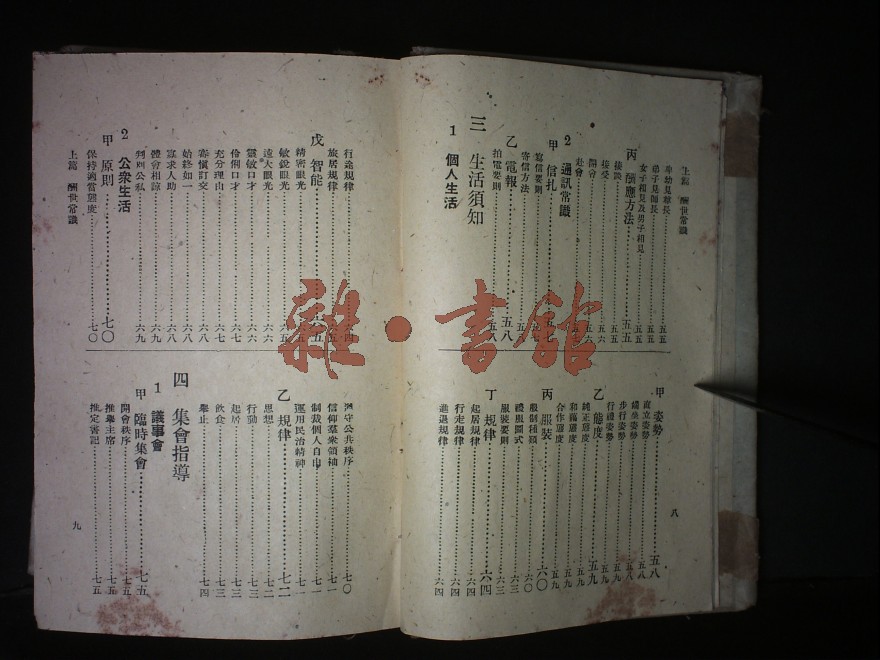 上篇 酬世常識
卑幼見尊長 五五
弟子見師長 五五
女子相見及男子相見 五五
丙 酬應方法 五五
接談 五五
接受 五六
開會 五六
赴會
2 通訊常識
甲 信扎 五七
寫信要則 五七
寄信方法 五七
乙 電報 五八
拍電要則 五八
三 生活須知
1 個人生活
甲 姿勢 五八
直立姿勢 五八
端坐姿勢 五八
步行姿勢 五九
行禮姿勢 五九
乙 態度 五九
純正態度 五九
和藹態度 五九
合作態度 五九
丙 服裝 六〇
服制種類 六〇
禮服圖式 六三
服裝要則 六三
丁 規律 六四
起居規律 六四
行走規律 六四
進退規律 六四
八
行走規律 六四
旅居規律
戊 智能
精密眼光
敏銳眼光
遠大眼光 六六
靈敏口才 六六
伶俐口才 六七
充分理由 六七
審慎訂交 六八
始終如一 六八
寡求人助 六八
體會相諒 六九
判別公私 六九
2 公衆生活
甲 原則 七〇
保持適當態度 七〇
上篇 酬世常識
遵守公共秩序 七〇
信仰羣衆領袖 七一
制裁個人自由 七一
運用民治精神 七一
乙 規律 七二
思想 七二
行動 七三
起居 七三
飲食 七三
舉止 七四
四 集會指導
1 議事會
甲 臨時集會 七五
開會秩序 七五
推舉主席 七五
推定書記 七五
九
雜·書館